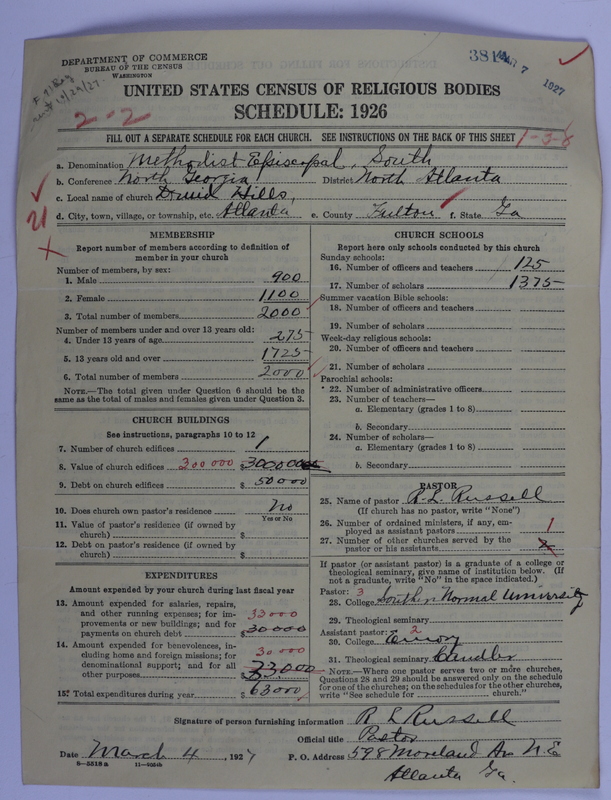 DEPARTMENT OF COMMERCE
BUREAU OF THE CENSUS
WASHINGTON
381
7 1927
UNITED STATES CENSUS OF RELIGIOUS BODIES
SCHEDULE: 1926
2-2
FILL OUT A SEPARATE SCHEDULE FOR EACH CHURCH. SEE INSTRUCTIONS ON THE BACK OF THIS SHEET
1-3-8
a. Denomination Methodist Episcopal, South
b. Conference North Georgia District North Atlanta
c. Local name of church Druid Hills,
d. City, town, village, or township, etc. Atlanta e. County Fulton f. State Ga
21
MEMBERSHIP
Report number of members according to definition of
member in your church
Number of members, by sex:
1. Male 900
2. Female 1100
3. Total number of members 2000
Number of members under and over 13 years old:
4. Under 13 years of age 275
5. 13 years old and over 1725
6. Total number of members 2000
NOTE.—The total given under Question 6 should be the
same as the total of males and females given under Question 3.
CHURCH BUILDINGS
See instructions, paragraphs 10 to 12
7. Number of church edifices 1
8. Value of church edifices 300000 $300000
9. Debt on church edifices $50000
10. Does church own pastor's residence No
Yes or No
11. Value of pastor's residence (if owned by
church) $
12. Debt on pastor's residence (if owned by
church) $
EXPENDITURES
Amount expended by your church during last fiscal year
13. Amount expended for salaries, repairs,
and other running expenses; for im-
provements or new buildings; and for
payments on church debt 33000 $30000
14. Amount expended for benevolences, in-
cluding home and foreign missions; for
denominational support; and for all
other purposes 30000 $33000
15. Total expenditures during year $63000
CHURCH SCHOOLS
Report here only schools conducted by this church
Sunday schools:
16. Number of officers and teachers 125
17. Number of scholars 1375
Summer vacation Bible schools:
18. Number of officers and teachers
19. Number of scholars
Week-day religious schools:
20. Number of officers and teachers
21. Number of scholars
Parochial schools:
22. Number of administrative officers
23. Number of teachers—
a. Elementary (grades 1 to 8)
b. Secondary
24. Number of scholars—
a. Elementary (grades 1 to 8)
b. Secondary
PASTOR
25. Name of pastor R. L. Russell
(If church has no pastor, write "None")
26. Number of ordained ministers, if any, em-
ployed as assistant pastors 1
27. Number of other churches served by the
pastor or his assistants
If pastor (or assistant pastor) is a graduate of a college or
theological seminary, give name of institution below. (If
not a graduate, write "No" in the space indicated.)
Pastor: 3
28. College Southern Normal University
29. Theological seminary
Assistant pastor: 2
30. College Emory
31. Theological seminary Candler
NOTE.—Where one pastor serves two or more churches,
Questions 28 and 29 should be answered only on the schedule
for one of the churches; on the schedules for the other churches,
write "See schedule for church."
Signature of person furnishing information R L Russell
Official title Pastor
Date March 4, 1927 P. O. Address 598 Moreland Av N.E
6-5518a 11-905th
Atlanta Ga.